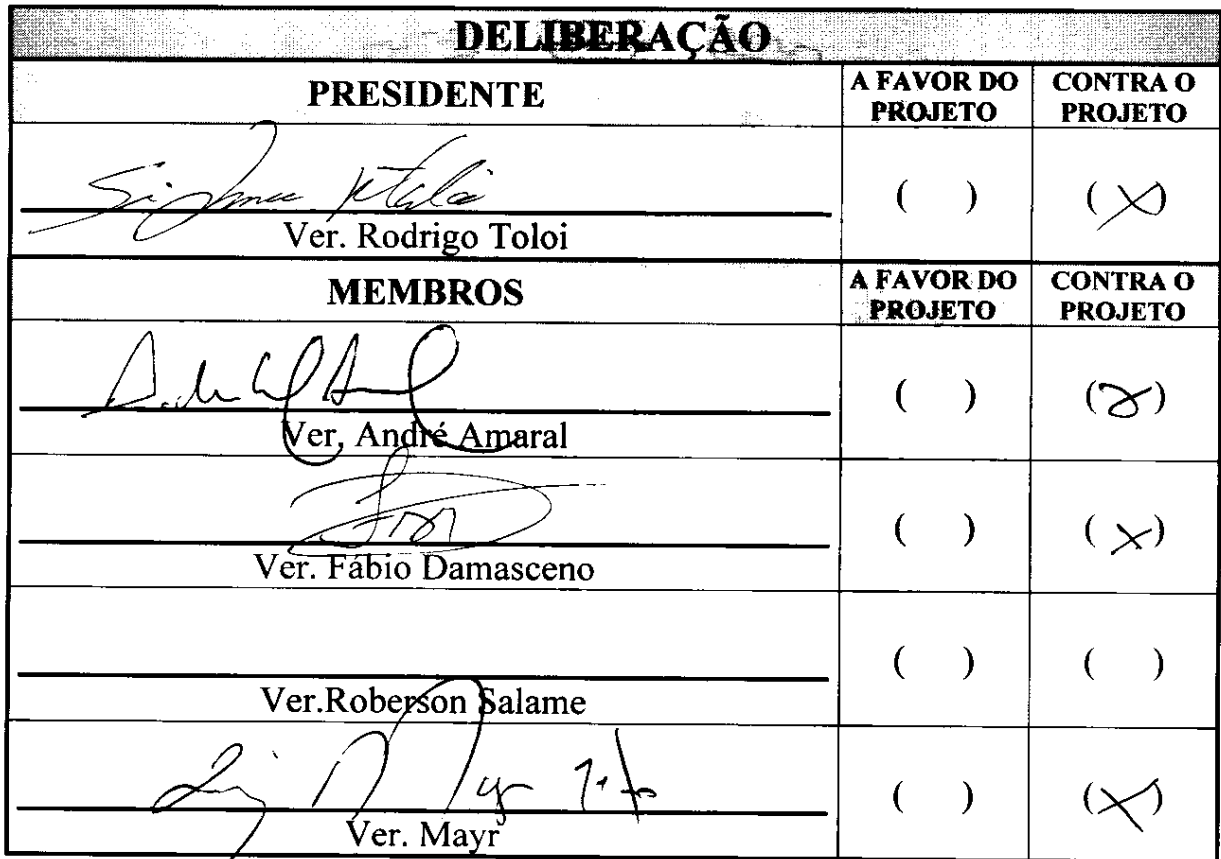 DELIBERAÇÃO
PRESIDENTE
A FAVOR DO PROJETO
CONTRA O PROJETO
( )
(X)
Ver. Rodrigo Toloi
MEMBROS
A FAVOR DO PROJETO
CONTRA O PROJETO
( )
(X)
Ver, André Amaral
( )
(X)
Ver. Fábio Damasceno
( )
( )
Ver.Roberson Salame
( )
(X)
Ver. Mayr